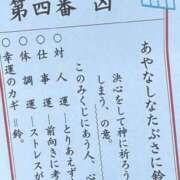 第四番 凶
あやなしなたぶさに鈴
決心をして神に祈ろう
しまう、の意。
このみくじにあう人、心
○対人運=とりあえず
○仕事運=前向きに考
○体調運=ストレスが
○幸運のカギ=鈴。